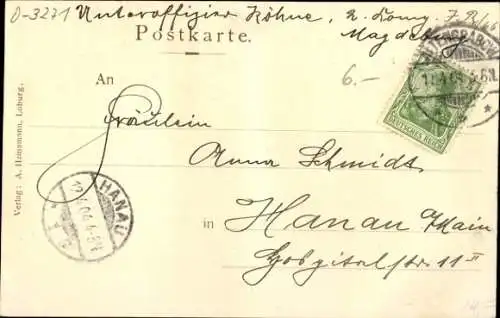 D-3271 Unteroffizier Köhne, 2. Comp. J. R.
Magdeburg
Postkarte.
6.-
DEUTSCHES REICH
An
Fräulein
Anna Schmidt
in Hanau Main
Hospitalstr. 11 II
HANAU
12.4.04
Verlag: A. Heinemann, Loburg.